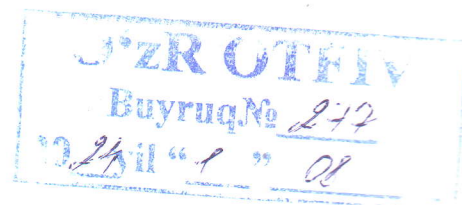 O'zR OTFIV
Buyruq № 277
2024 yil “1” 08